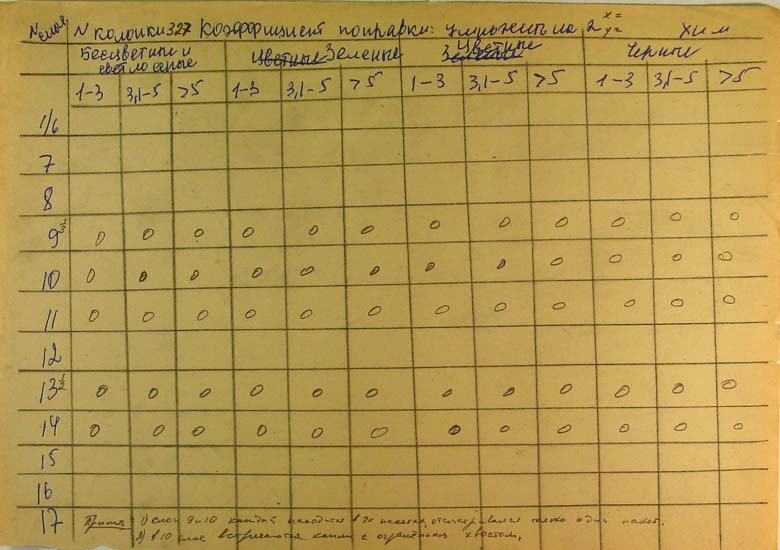 N слоя N колонки 327 Коэффициент поправки: умножить на 2 x= y= X и м
Бесцветные и светлосерые Цветные Зеленые Цветные Зеленые Черные
1-3 3,1-5 >5 1-3 3,1-5 >5 1-3 3,1-5 >5 1-3 3,1-5 >5
1/6
7
8
9 1/2 0 0 0 0 0 0 0 0 0 0 0 0
10 0 0 0 0 0 0 0 0 0 0 0 0
11 0 0 0 0 0 0 0 0 0 0 0 0
12
13 1/2 0 0 0 0 0 0 0 0 0 0 0 0
14 0 0 0 0 0 0 0 0 0 0 0 0
15
16
17 Прим: 1) слои 9 и 10 каждый находится в 2х пакетах, отсматривался только один пакет.
2) в 10 слое встречаются капли с хвостом,